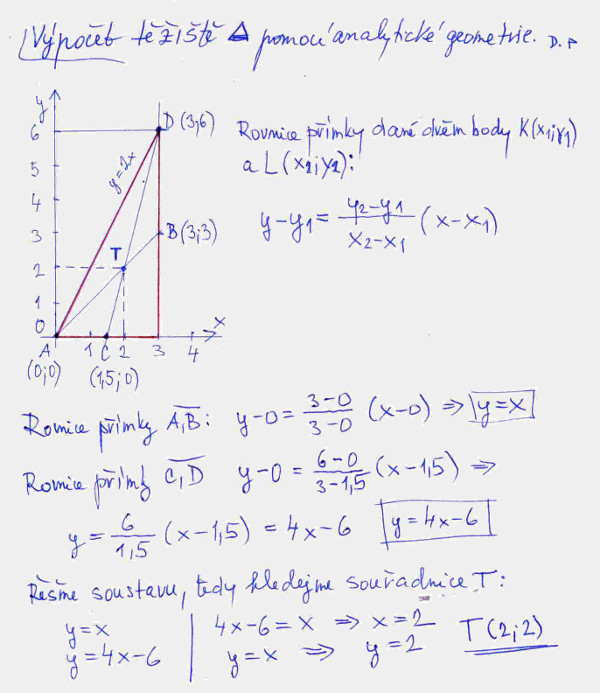 Výpočet těžiště Δ pomocí analytické geometrie. D.P
y
6
5
4
3
2
1
0
D (3;6)
y=2x
B (3;3)
T
x
A 1 C 2 3 4
(0;0) (1,5;0)
Rovnice přímky dané dvěm body K(x₁;y₁)
a L(x₂;y₂):
y-y₁ = (y₂-y₁)/(x₂-x₁) (x-x₁)
Rovnice přímky A,B: y-0 = (3-0)/(3-0) (x-0) ⇒ y=x
Rovnice přímky C,D y-0 = (6-0)/(3-1,5) (x-1,5) ⇒
y = 6/1,5 (x-1,5) = 4x-6 y=4x-6
Řešme soustavu, tedy hledejme souřadnice T:
y=x | 4x-6=x ⇒ x=2 T(2;2)
y=4x-6 | y=x ⇒ y=2